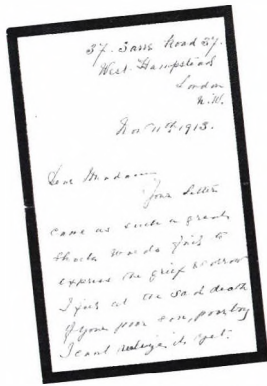 Road 37.
West Hampstead
London
N.W.
Nov 11th 1913.
Dear Madam,
Your letter
came as such a great
shock words fail to
express the grief & sorrow
I feel at the sad death
of your poor son, poor boy
I cant realize it yet.